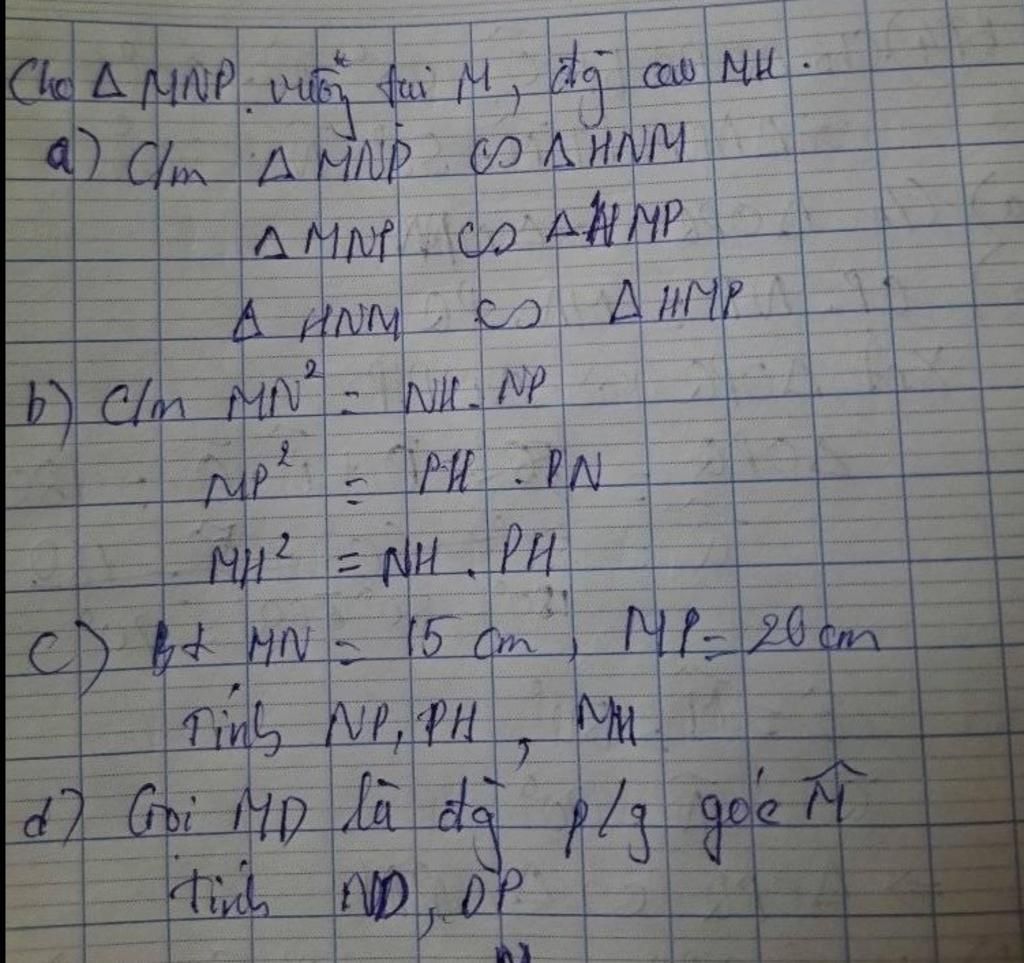 Cho Δ MNP vuông tại M, đg cao MH.
a) C/m Δ MNP ∽ Δ HNM
Δ MNP ∽ Δ HMP
Δ HNM ∽ Δ HMP
b) C/m MN² = NH. NP
MP² = PH . PN
MH² = NH . PH
c) Bt MN = 15 cm, MP = 20 cm
Tính NP, PH, NH
d) Gọi MD là đg p/g góc M̂
Tính ND, DP